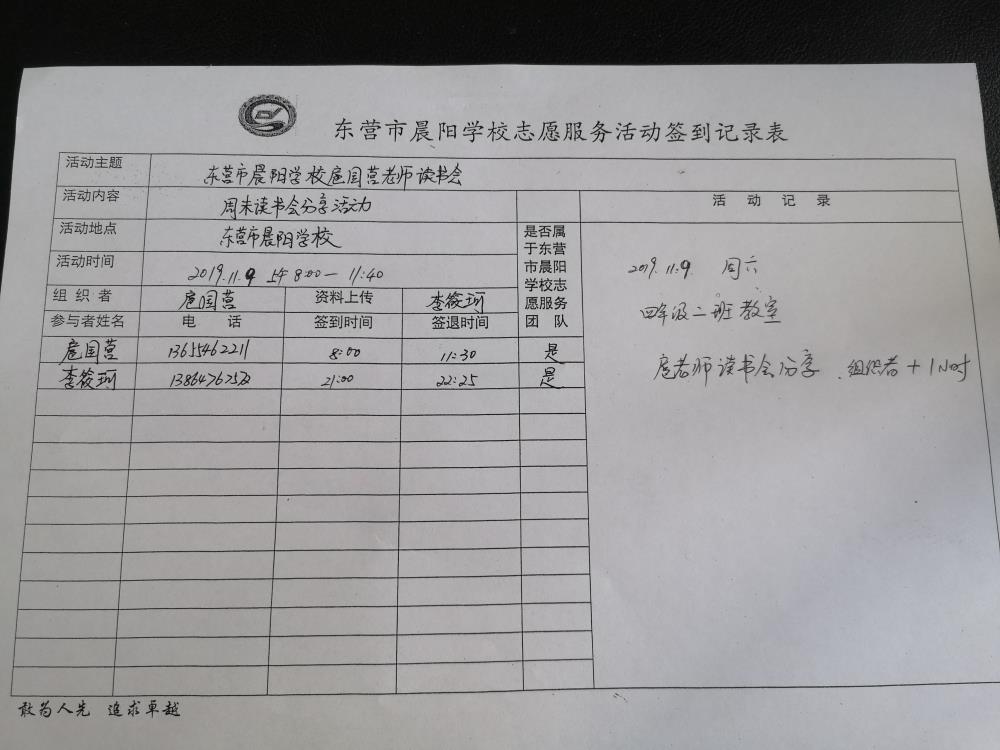 东营市晨阳学校志愿服务活动签到记录表
活动主题 东营市晨阳学校扈国营老师读书会
活动内容 周末读书会分享活动 活动记录
活动地点 东营市晨阳学校
活动时间 2019.11.9 上午 8:00—11:40
是否属于东营市晨阳学校志愿服务团队
组织者 扈国营 资料上传 李筱珂
参与者姓名 电话 签到时间 签退时间
扈国营 13655462211 8:00 11:30 是
李筱珂 21:00 22:25 是
2019.11.9 周六
四年级二班教室
扈老师读书会分享、组织者+1小时
敢为人先 追求卓越